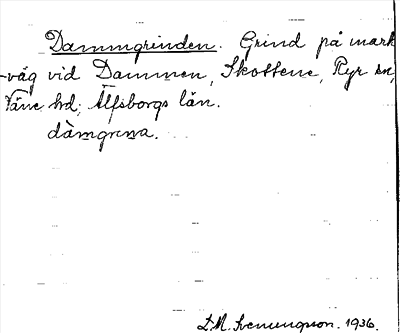 Dammgrinden. Grind på mark
-väg vid Dammen, Skottene, Ryr sn,
Väne hd, Älfsborgs län.
dàmgrena.
L.M. Svenungson. 1936.